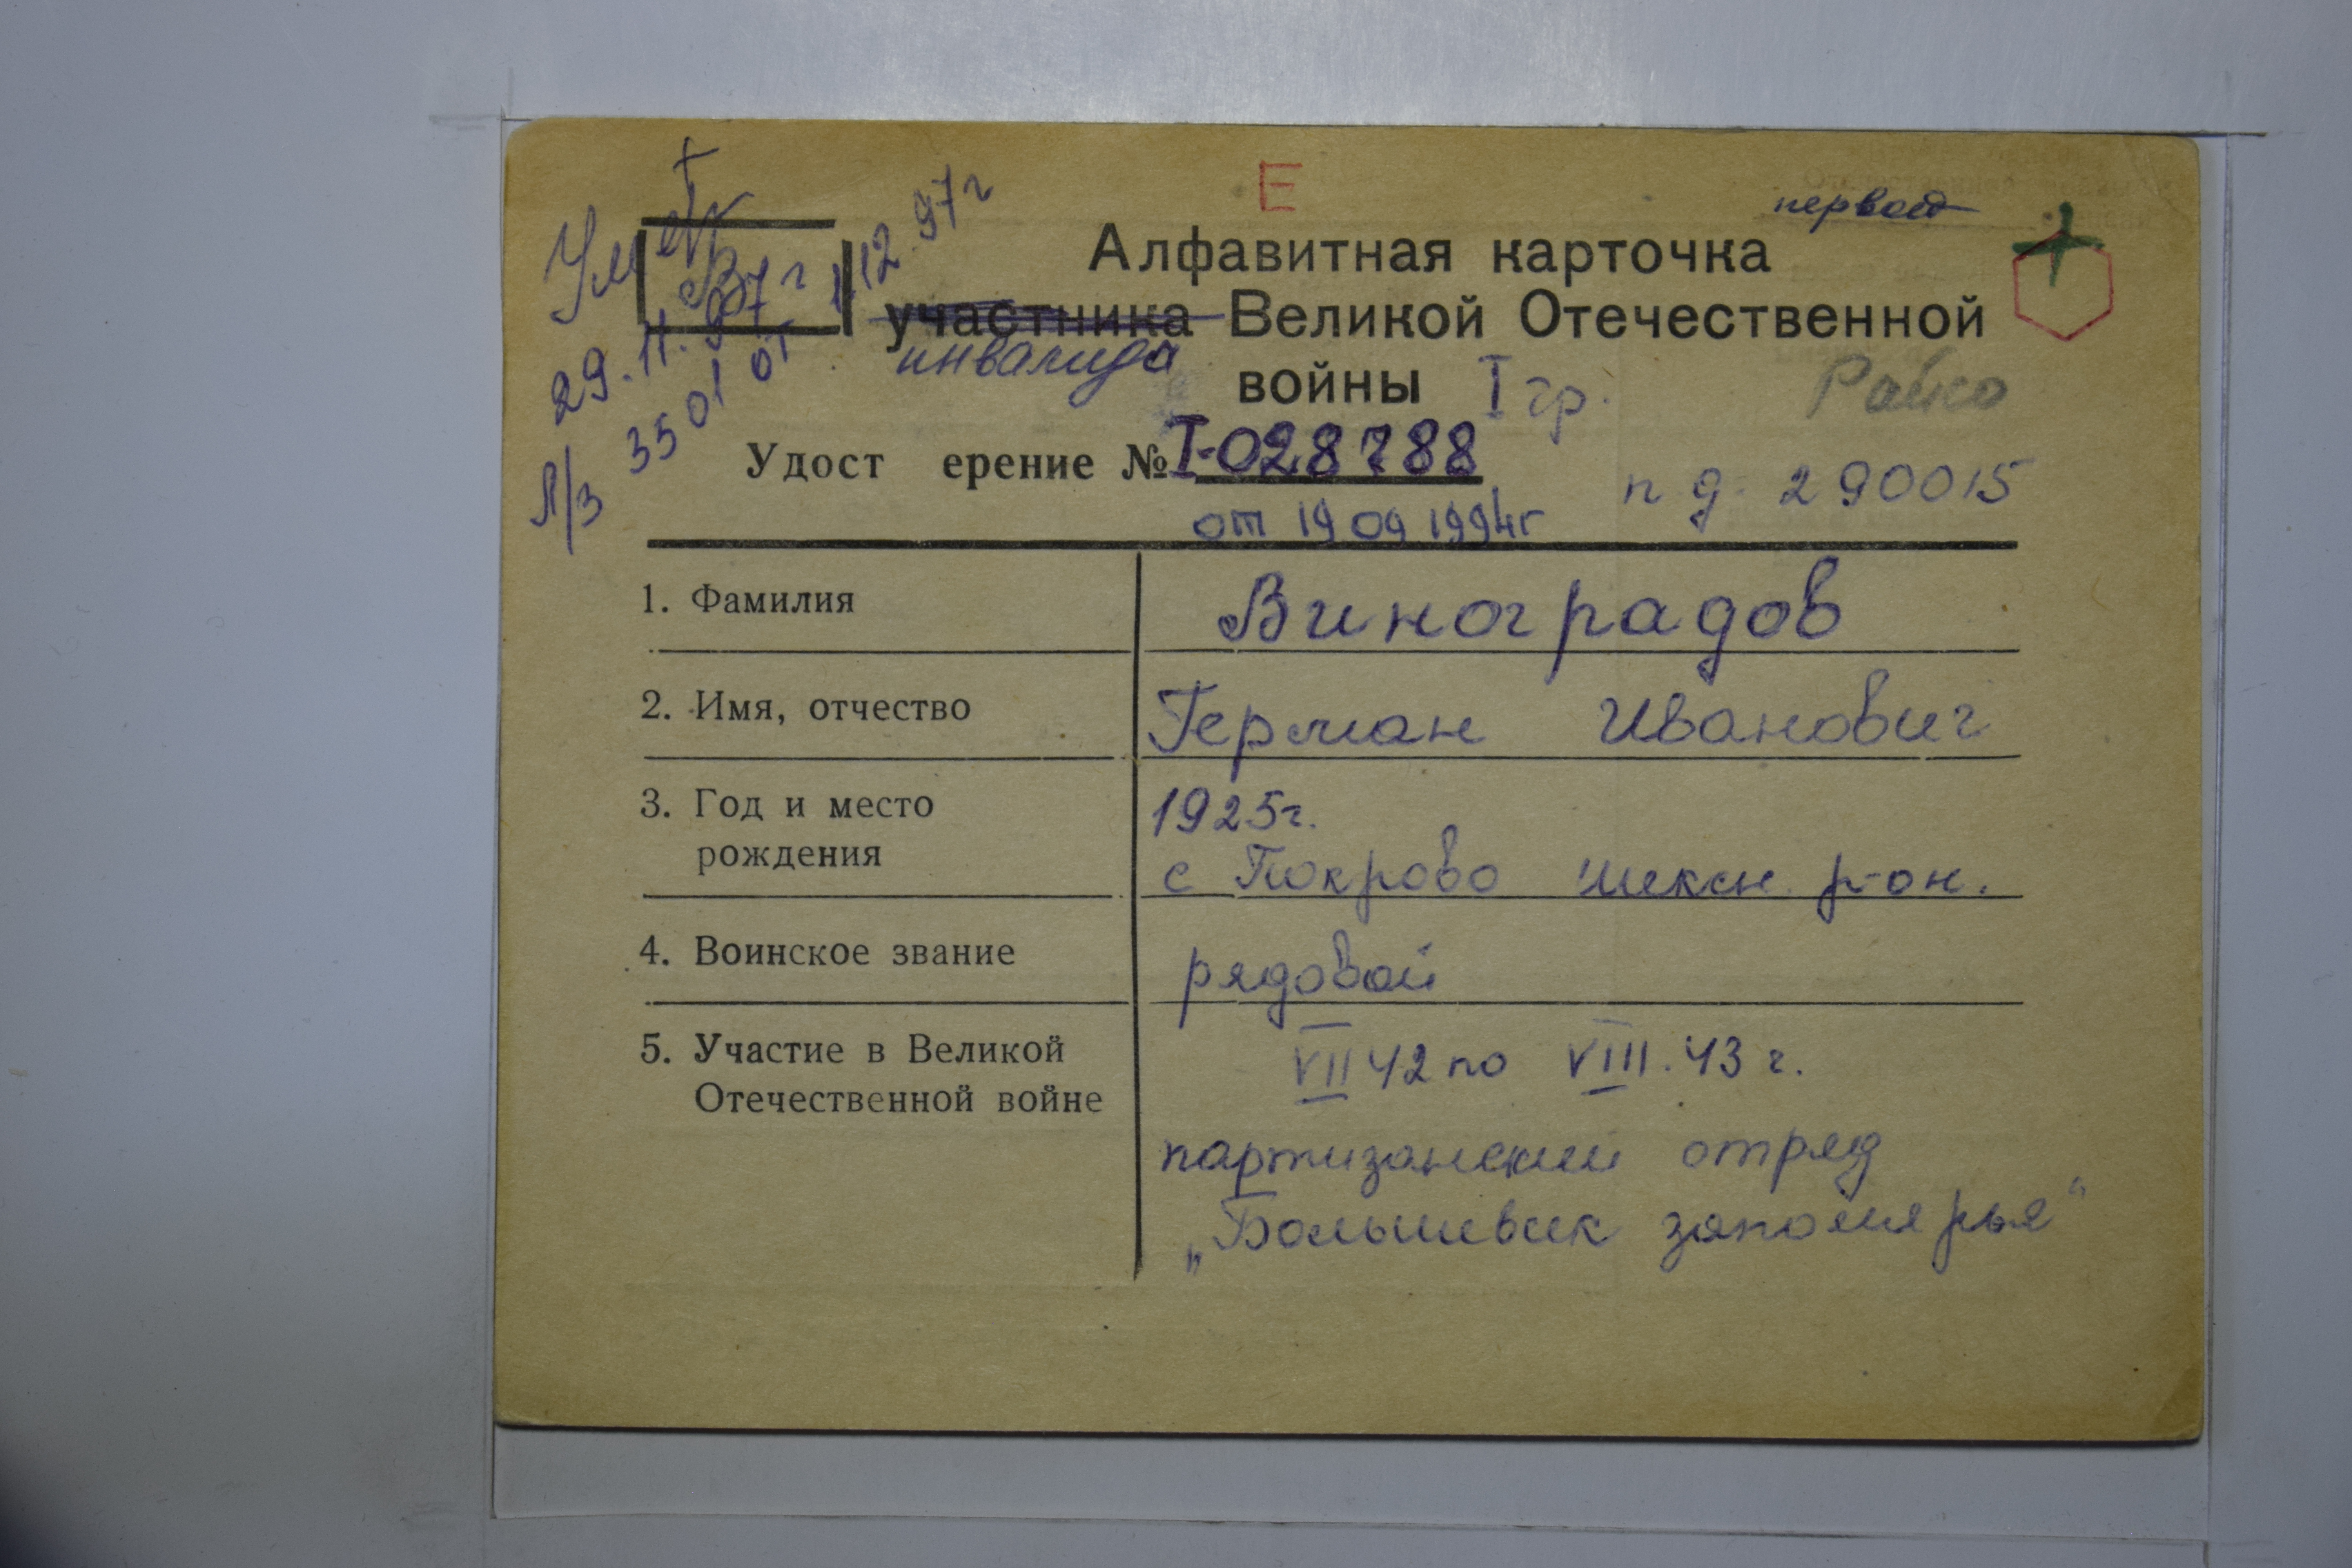 Умер
29.11.97г
Л/з 3501 от 1.12.97г
В
Е
первой
Алфавитная карточка
участника Великой Отечественной
инвалида
войны I гр.
Удост ерение № I-028788
п д 290015
от 19 09 1994г
1. Фамилия Виноградов
2. Имя, отчество Герман Иванович
3. Год и место 1925г.
рождения с Покрово шексн. р-он.
4. Воинское звание рядовой
5. Участие в Великой VII 42 по VIII.43 г.
Отечественной войне
партизанский отряд
„Большевик заполярья“